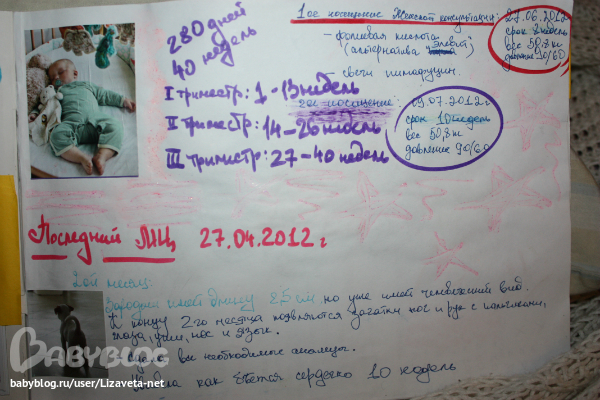 280 дней
40 недель
I триместр: 1-13 недель
II триместр: 14-26 недель
III триместр: 27-40 недель
1ое посещение Женской консультации: 27.06.2012
срок 8 недель
вес 50,8 кг
давление 90/60
- фолиевая кислота
(альтернатива Элевит)
свечи пимафуцин.
2ое посещение: 09.07.2012г
срок 10 недель
вес 50,8 кг
давление 90/60
Последний МЦ 27.04.2012г
2ой месяц:
Зародыш имеет длину см но уже имеет человеческий вид.
К концу 2го месяца появляются зачатки ног и рук с пальчиками,
глаза, уши, нос и язык.
все необходимые анализы.
как бьется сердечко 10 недель
BABYBLOG
babyblog.ru/user/Lizaveta-net